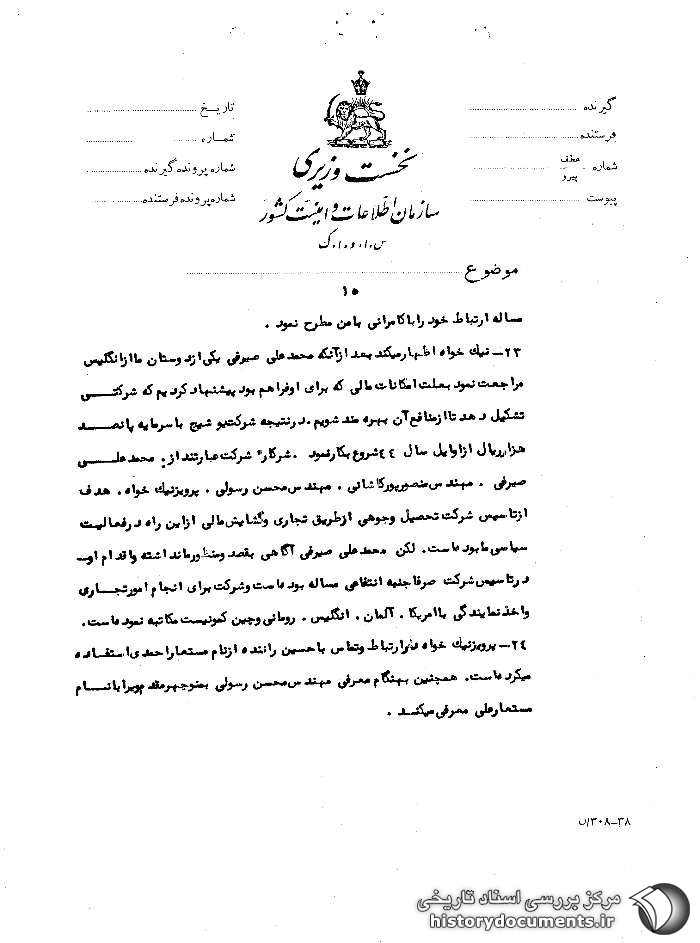 گیرنده
تاریخ
فرستنده
شماره
شماره عطف پیرو
شماره پرونده گیرنده
پیوست
شماره پرونده فرستنده
نخست وزیری
سازمان اطلاعات و امنیت کشور
س.ا.و.ا.ک
موضوع
۱۰
مساله ارتباط خود را با کامرانی با من مطرح نمود .
۲۳- نیک خواه اظهار میکند بعد از آنکه محمد علی صیرفی یکی از دوستان ما از انگلیس
مراجعت نمود بعلت امکانات مالی که برای او فراهم بود پیشنهاد کردیم که شرکتی
تشکیل دهد تا از منافع آن بهره مند شویم . در نتیجه شرکت بوشیج با سرمایه پانصد
هزار ریال از اوایل سال ۴۴ شروع بکار نمود . شرکاء شرکت عبارتند از . محمد علی
صیرفی . مهندس منصور پورکاشانی . مهندس محسن رسولی . پرویز نیک خواه . هدف
از تاسیس شرکت تحصیل وجوهی از طریق تجاری و گشایش مالی از این راه در فعالیت
سیاسی ما بوده است . لکن محمد علی صیرفی آگاهی بقصد و منظور ما نداشته و اقدام او
در تاسیس شرکت صرفا جنبه انتفاعی مساله بوده است و شرکت برای انجام امور تجاری
واخذ نمایندگی با امریکا . آلمان . انگلیس . رومانی و چین کمونیست مکاتبه نموده است .
۲۴- پرویز نیک خواه در ارتباط و تماس با حسین راننده از نام مستعار احمدی استفاده
میکرده است . همچنین بهنگام معرفی مهندس محسن رسولی بمنوچهر مقدم ویرا با نام
مستعار علی معرفی میکند .
۳۰۸-۳۸/ن
مرکز بررسی اسناد تاریخی
historydocuments.ir